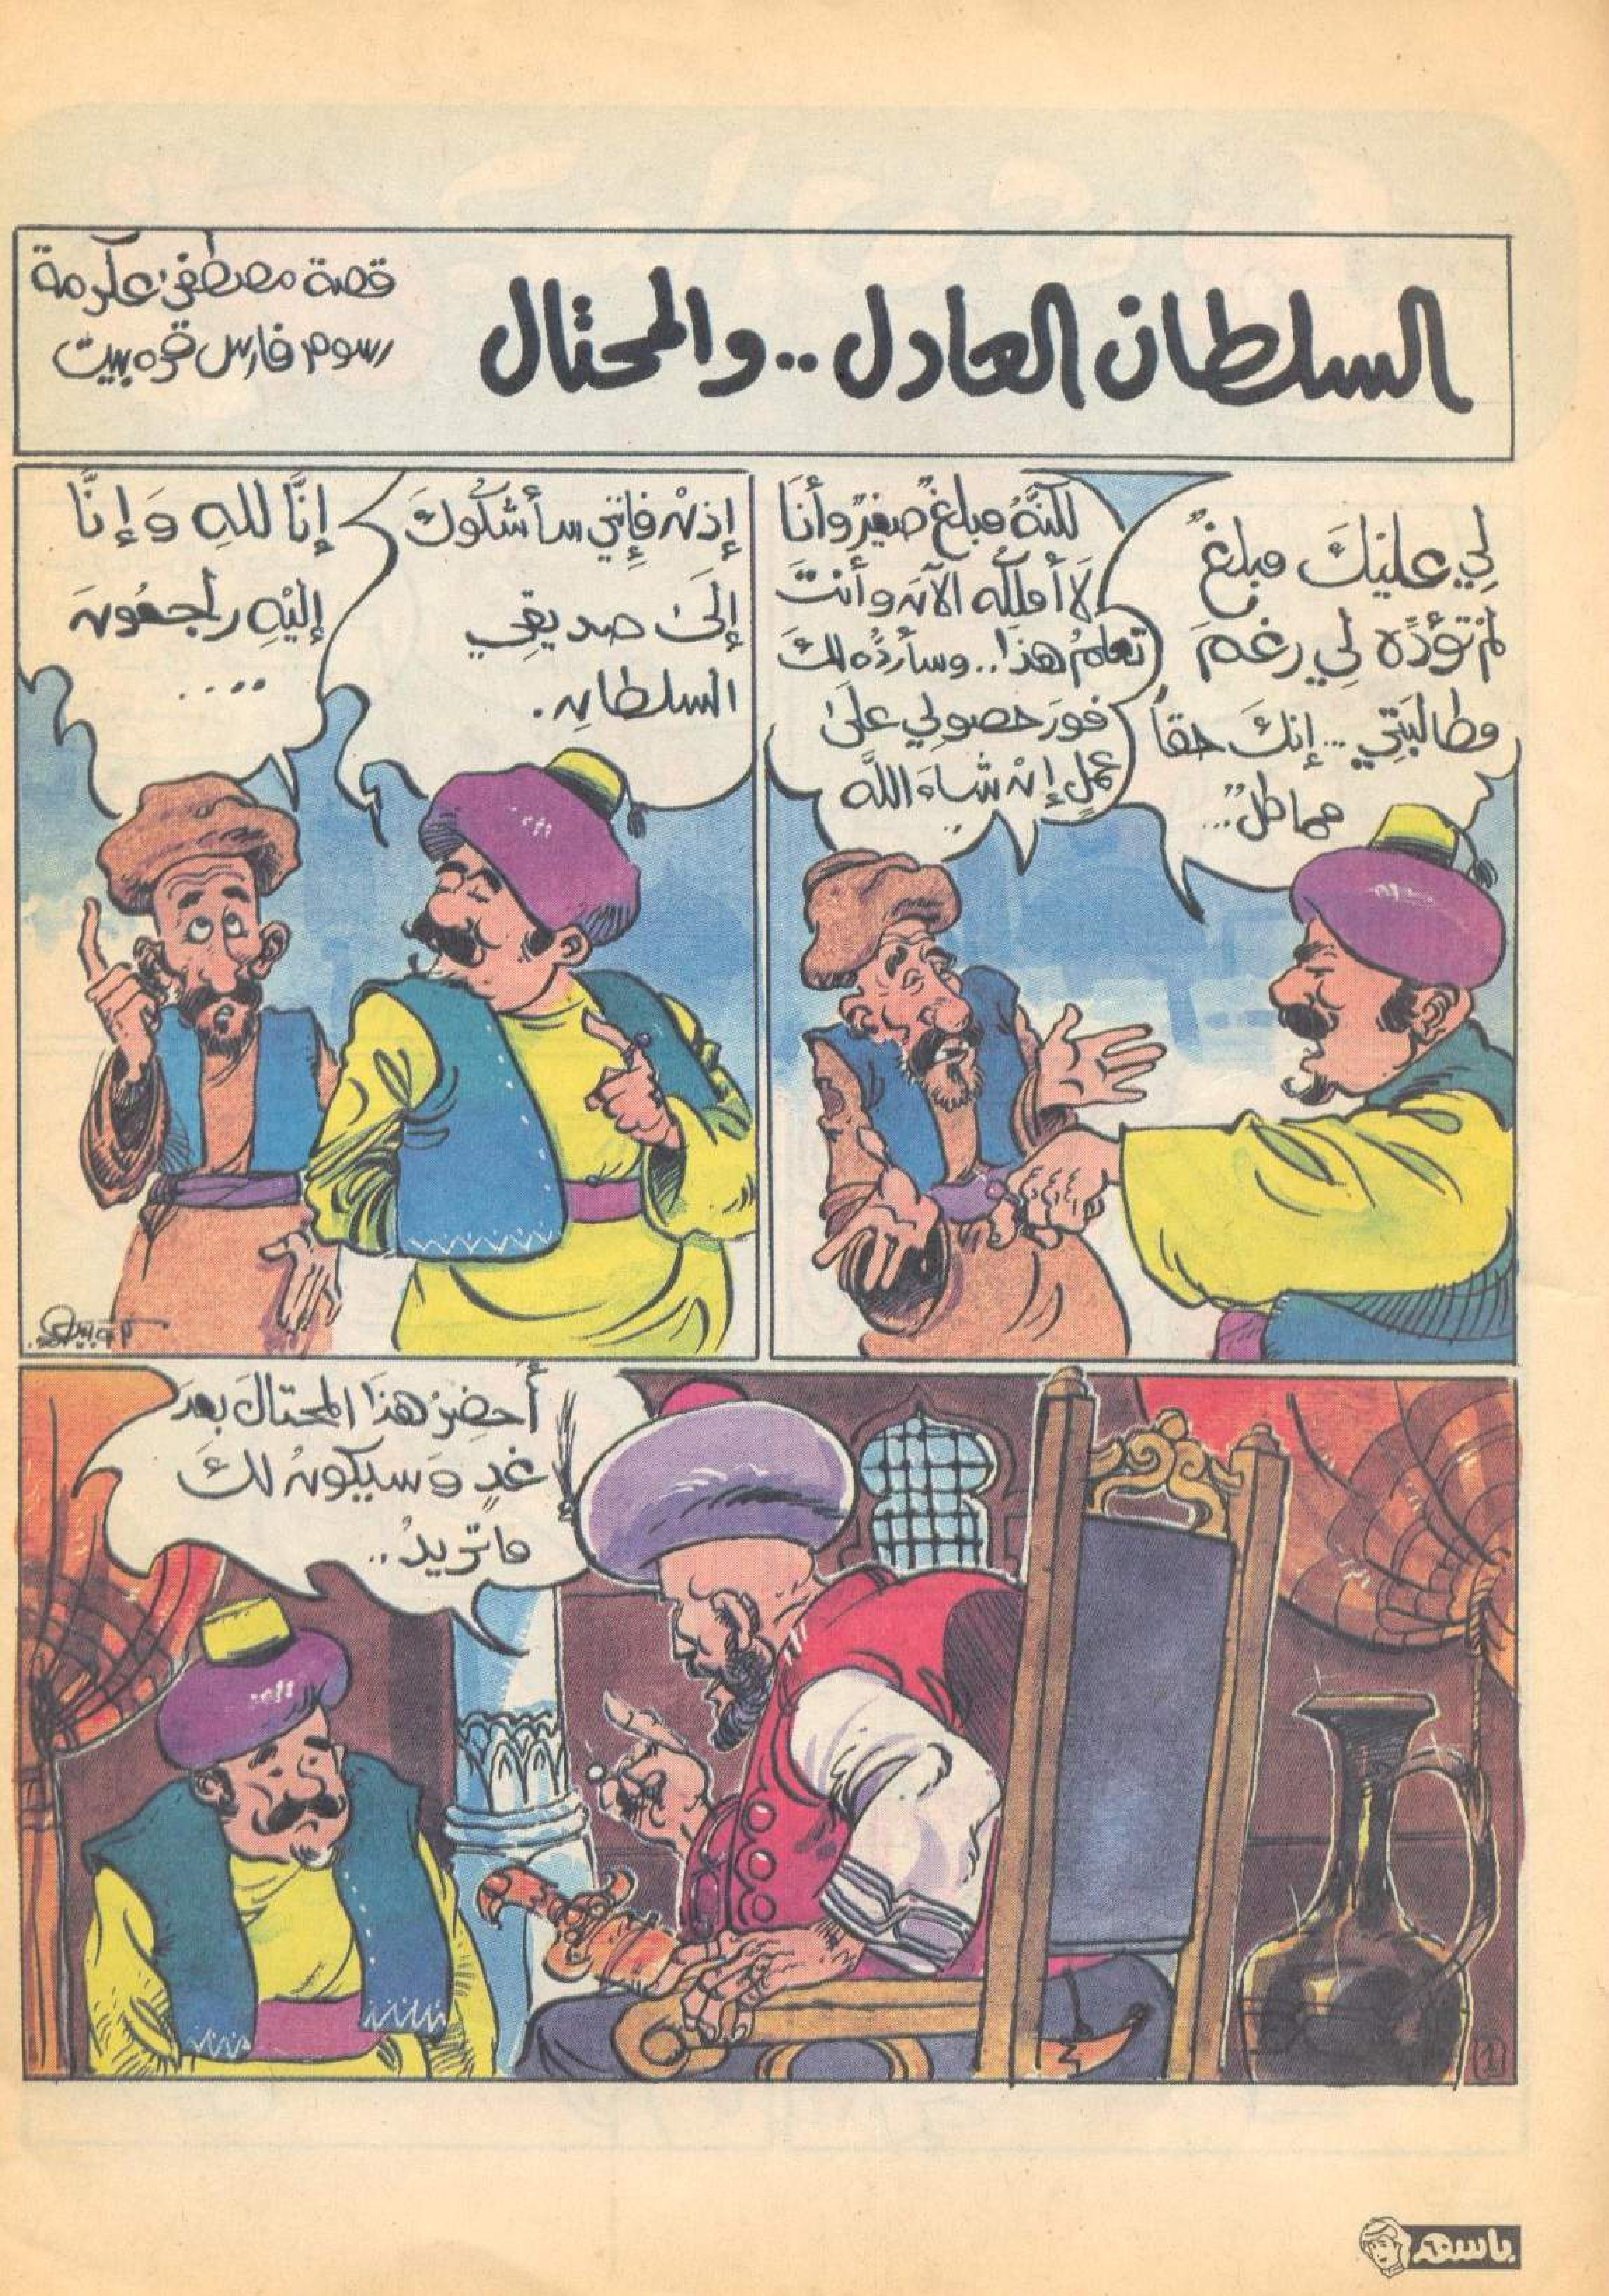 السلطان العادل .. والمحتال
قصة مصطفى عكرمة
رسوم فارس قره بيت
لِي عليْكَ مبلغٌ
لمْ تؤدِّه لِي رغمَ
مطالبَتِي ... إنكَ حقاً
مماطلٌ ...
لكنَّهُ مبلغٌ صغيرٌ وأنَا
لَا أملِكُه الآنَ وأنتَ
تعلمُ هذا .. وسأردُّه لكَ
فورَ حصولِي علىٰ
عملٍ إنْ شاءَ اللَّه
..
إذنْ فإِنِّي سأشكُوكَ
إلَىٰ صديقِي
السلطانِ .
إنَّا للهِ وَإِنَّا
إليْهِ راجعُونَ
....
أَحضِرْ هذَا المحتالَ بعدَ
غدٍ وَسيكونُ لكَ
ماتريدُ ..
(1)
باسم